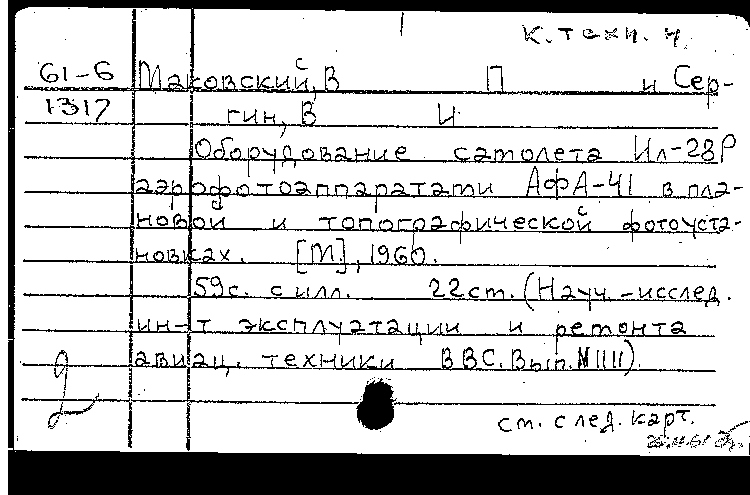 к. техн. ч.
61-6 Маковский, В П и Сер-
1317 гин, В И
Оборудование самолета Ил-28Р
аэрофотоаппаратами АФА-41 в пла-
новой и топографической фотоуста-
новках. [М], 1960.
59с. с илл. 22см. (Науч.-исслед.
ин-т эксплуатации и ремонта
авиац. техники ВВС. Вып. № 1111).
2
см. след. карт.